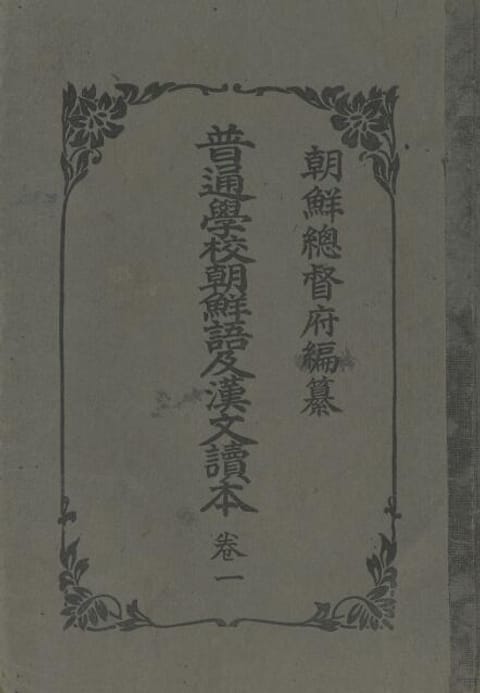 朝鮮總督府編纂
普通學校朝鮮語及漢文讀本 卷一